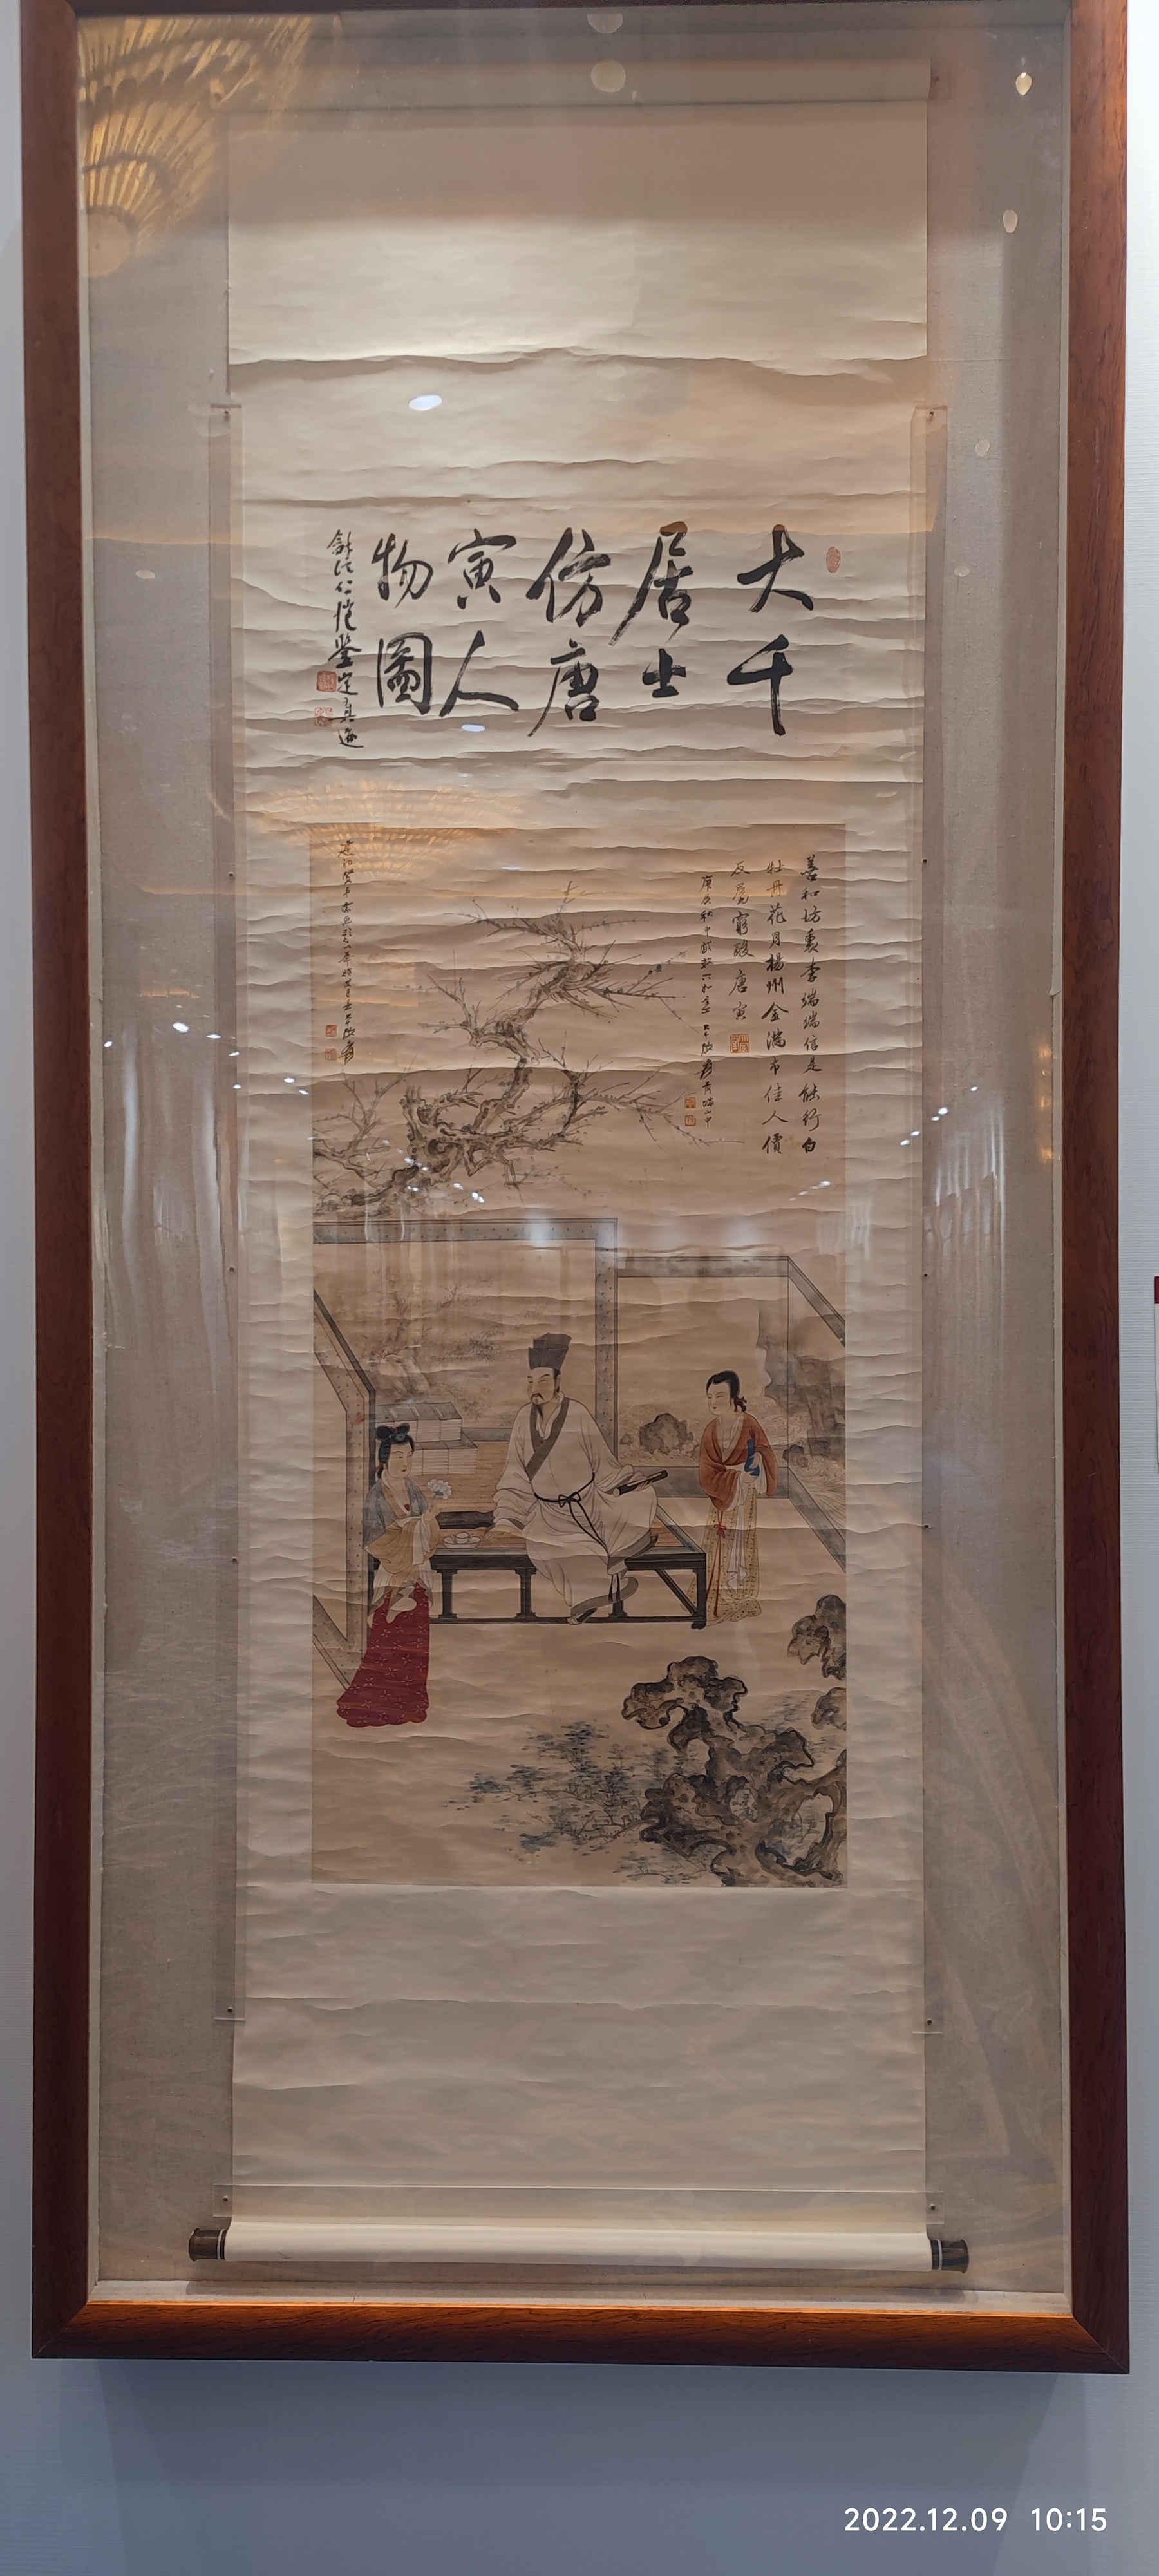 大千
居士
仿唐
寅人
物圖
龢溪仁愷鑒定真迹
善和坊裏李端端信是能行白
牡丹花月揚州金滿市佳人價
反屬窮酸唐寅
庚辰秋中
青城山中
2022.12.09 10:15